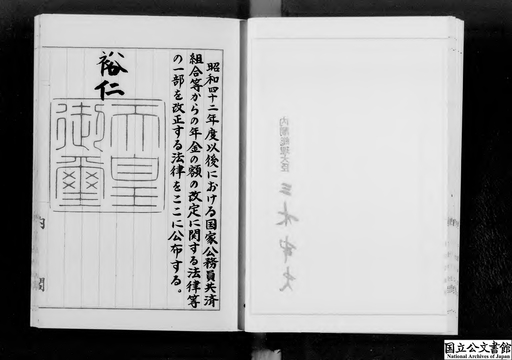 昭和四十二年度以後における国家公務員共済
組合等からの年金の額の改定に関する法律等
の一部を改正する法律をここに公布する。
裕仁
天皇
御璽
内閣
国立公文書館
National Archives of Japan